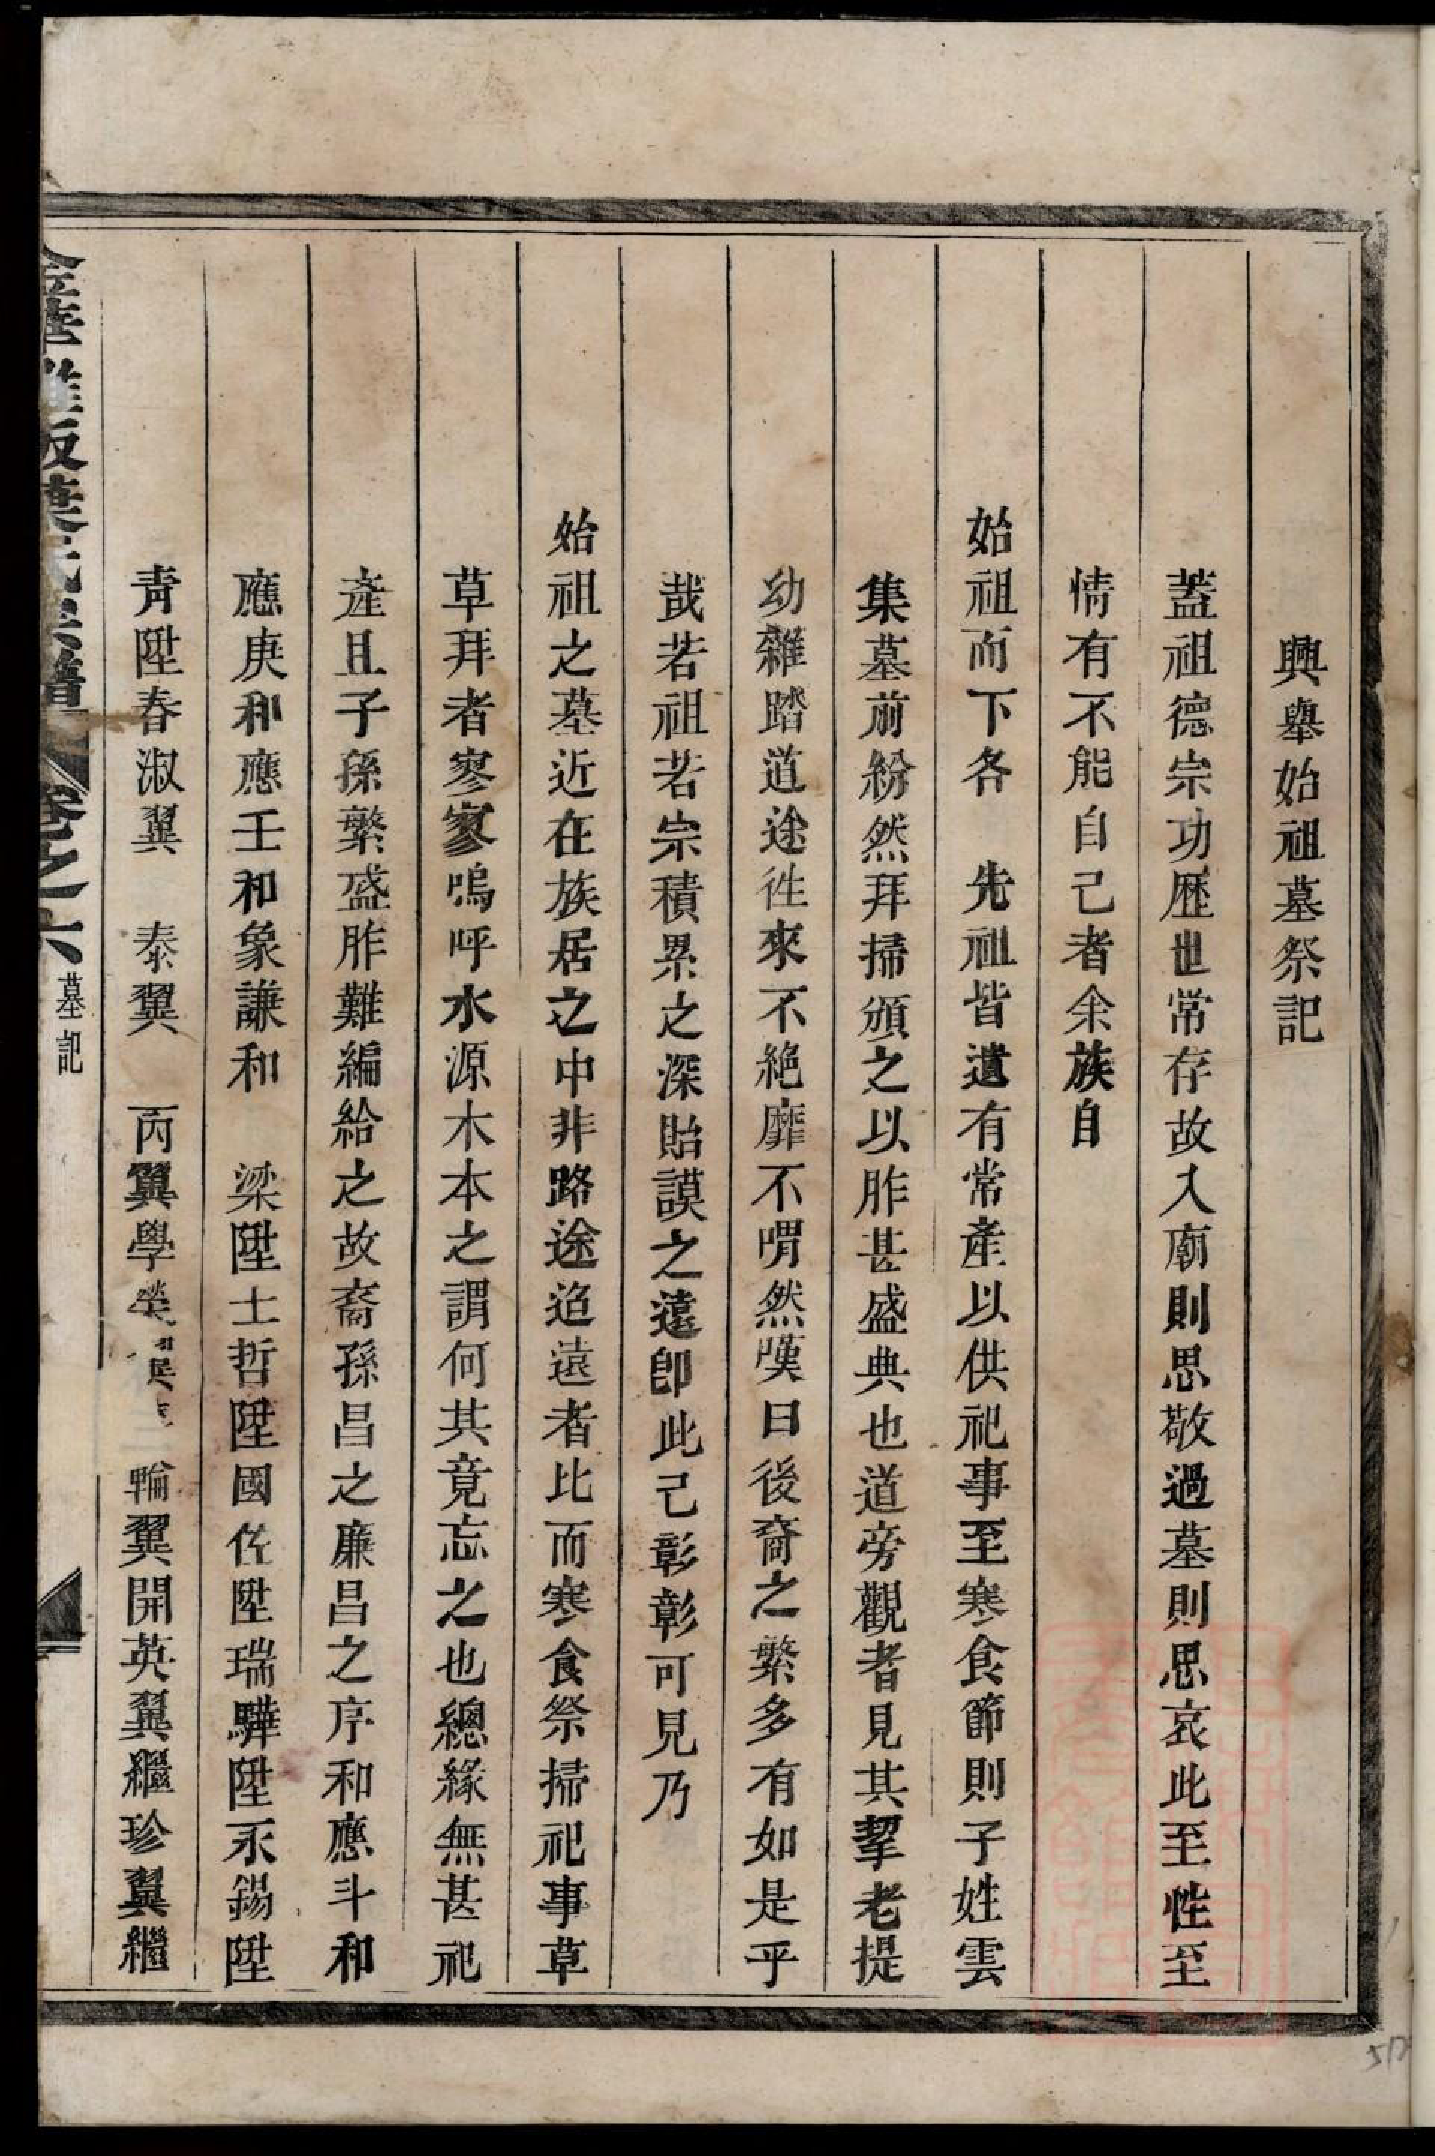 興舉始祖墓祭記
蓋祖德宗功歷世常存故入廟則思敬過墓則思哀此至性至
情有不能自己者余族自
始祖而下各 先祖皆遺有常產以供祀事至寒食節則子姓雲
集墓前紛然拜掃頒之以胙甚盛典也道旁觀者見其挈老提
幼雜踏道途徃來不絕靡不喟然嘆曰後裔之繁多有如是乎
哉若祖若宗積累之深貽謨之遠卽此己彰彰可見乃
始祖之墓近在族居之中非路途迢遠者比而寒食祭掃祀事草
草拜者寥寥嗚呼水源木本之謂何其竟忘之也總緣無甚祀
產且子孫繁盛胙難編給之故裔孫昌之廉昌之序和應斗和
應庚和應壬和象謙和 梁陞士哲陞國佐陞瑞驊陞永錫陞
青陞春淑翼 泰翼 丙翼學 輪翼開英翼繼珍翼繼
金華 阪葉氏宗譜 卷之六 墓記